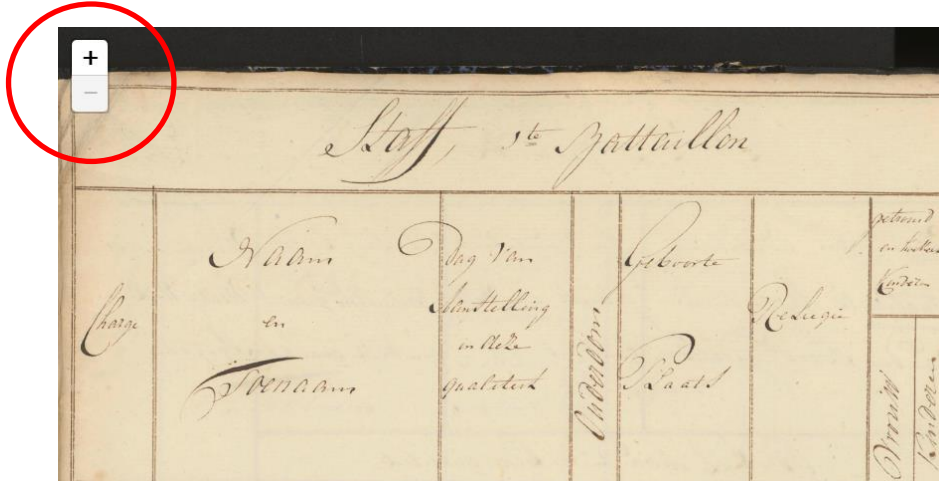 +
−
Staff, 1te Battaillon
Charge
Naam
en
Toenaam
Dag Van
Aanstelling
in deze
qualiteit
Ouderdom
Geboorte
Plaats
Religie
getrouwd
en hoeveel
Kinderen
Vrouw
Kinderen